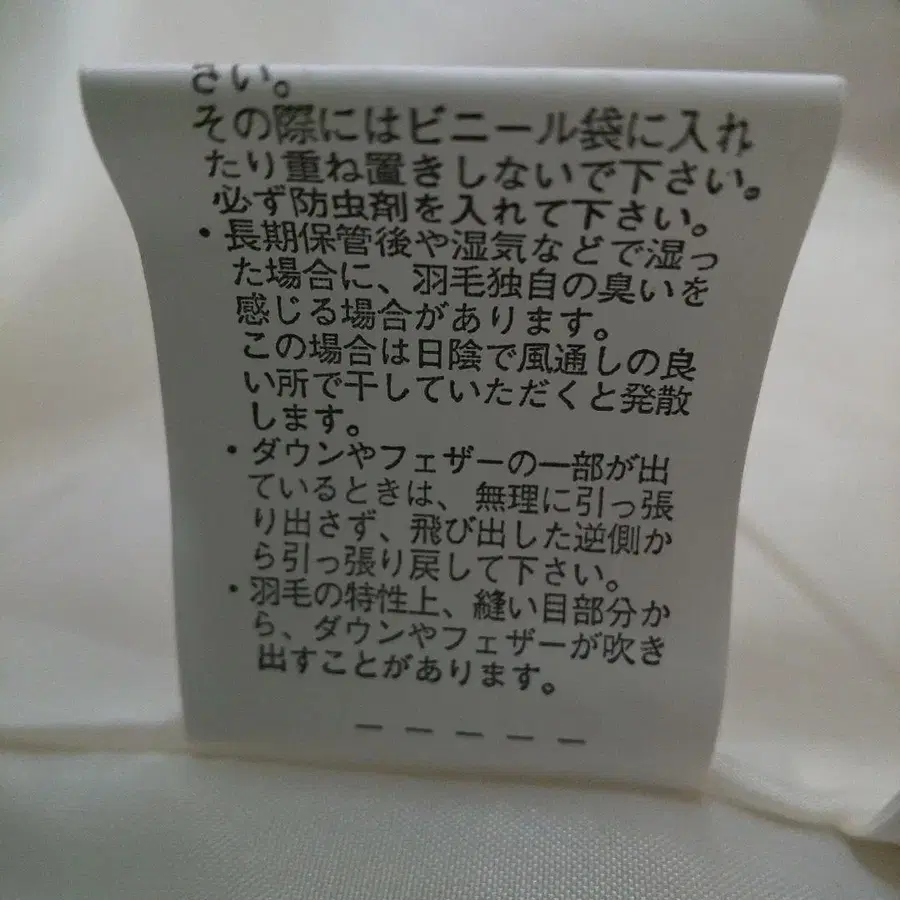 さい。
その際にはビニール袋に入れ
たり重ね置きしないで下さい。
必ず防虫剤を入れて下さい。
・長期保管後や湿気などで湿っ
た場合に、羽毛独自の臭いを
感じる場合があります。
この場合は日陰で風通しの良
い所で干していただくと発散
します。
・ダウンやフェザーの一部が出
ているときは、無理に引っ張
り出さず、飛び出した逆側か
ら引っ張り戻して下さい。
・羽毛の特性上、縫い目部分か
ら、ダウンやフェザーが吹き
出すことがあります。
－－－－－